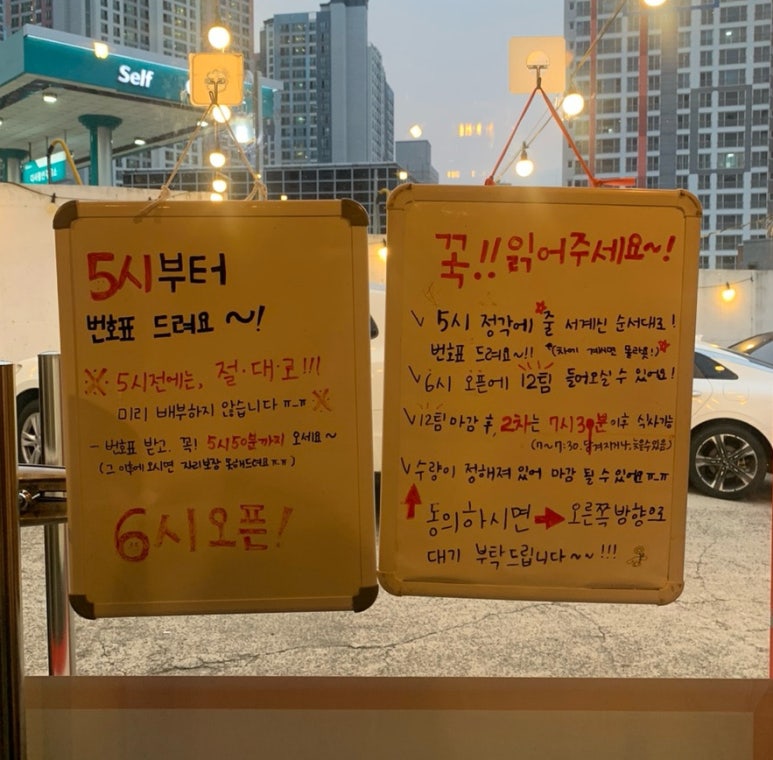 Self
5시부터
번호표 드려요 ~!
※ 5시전에는, 절·대·로!!!
미리 배부하지 않습니다 ㅠ_ㅠ ※
- 번호표 받고, 꼭! 5시50분까지 오세요~
(그 이후에 오시면 자리보장 못해드려요 ㅠㅠ)
6시 오픈!
꼭!! 읽어주세요~!
✓ 5시 정각에 줄 서계신 순서대로!
번호표 드려요~!! *(차에 계시면 몰라요!)*
✓ 6시 오픈에 12팀 들어오실 수 있어요!
✓ 12팀 마감 후, 2차는 7시30분 이후 식사가능
(7~7:30. 당겨지거나, 늦을수있음)
✓ 수량이 정해져 있어 마감 될 수 있어요 ㅠ_ㅠ
↑ 동의하시면 → 오른쪽 방향으로
대기 부탁드립니다~~!!!